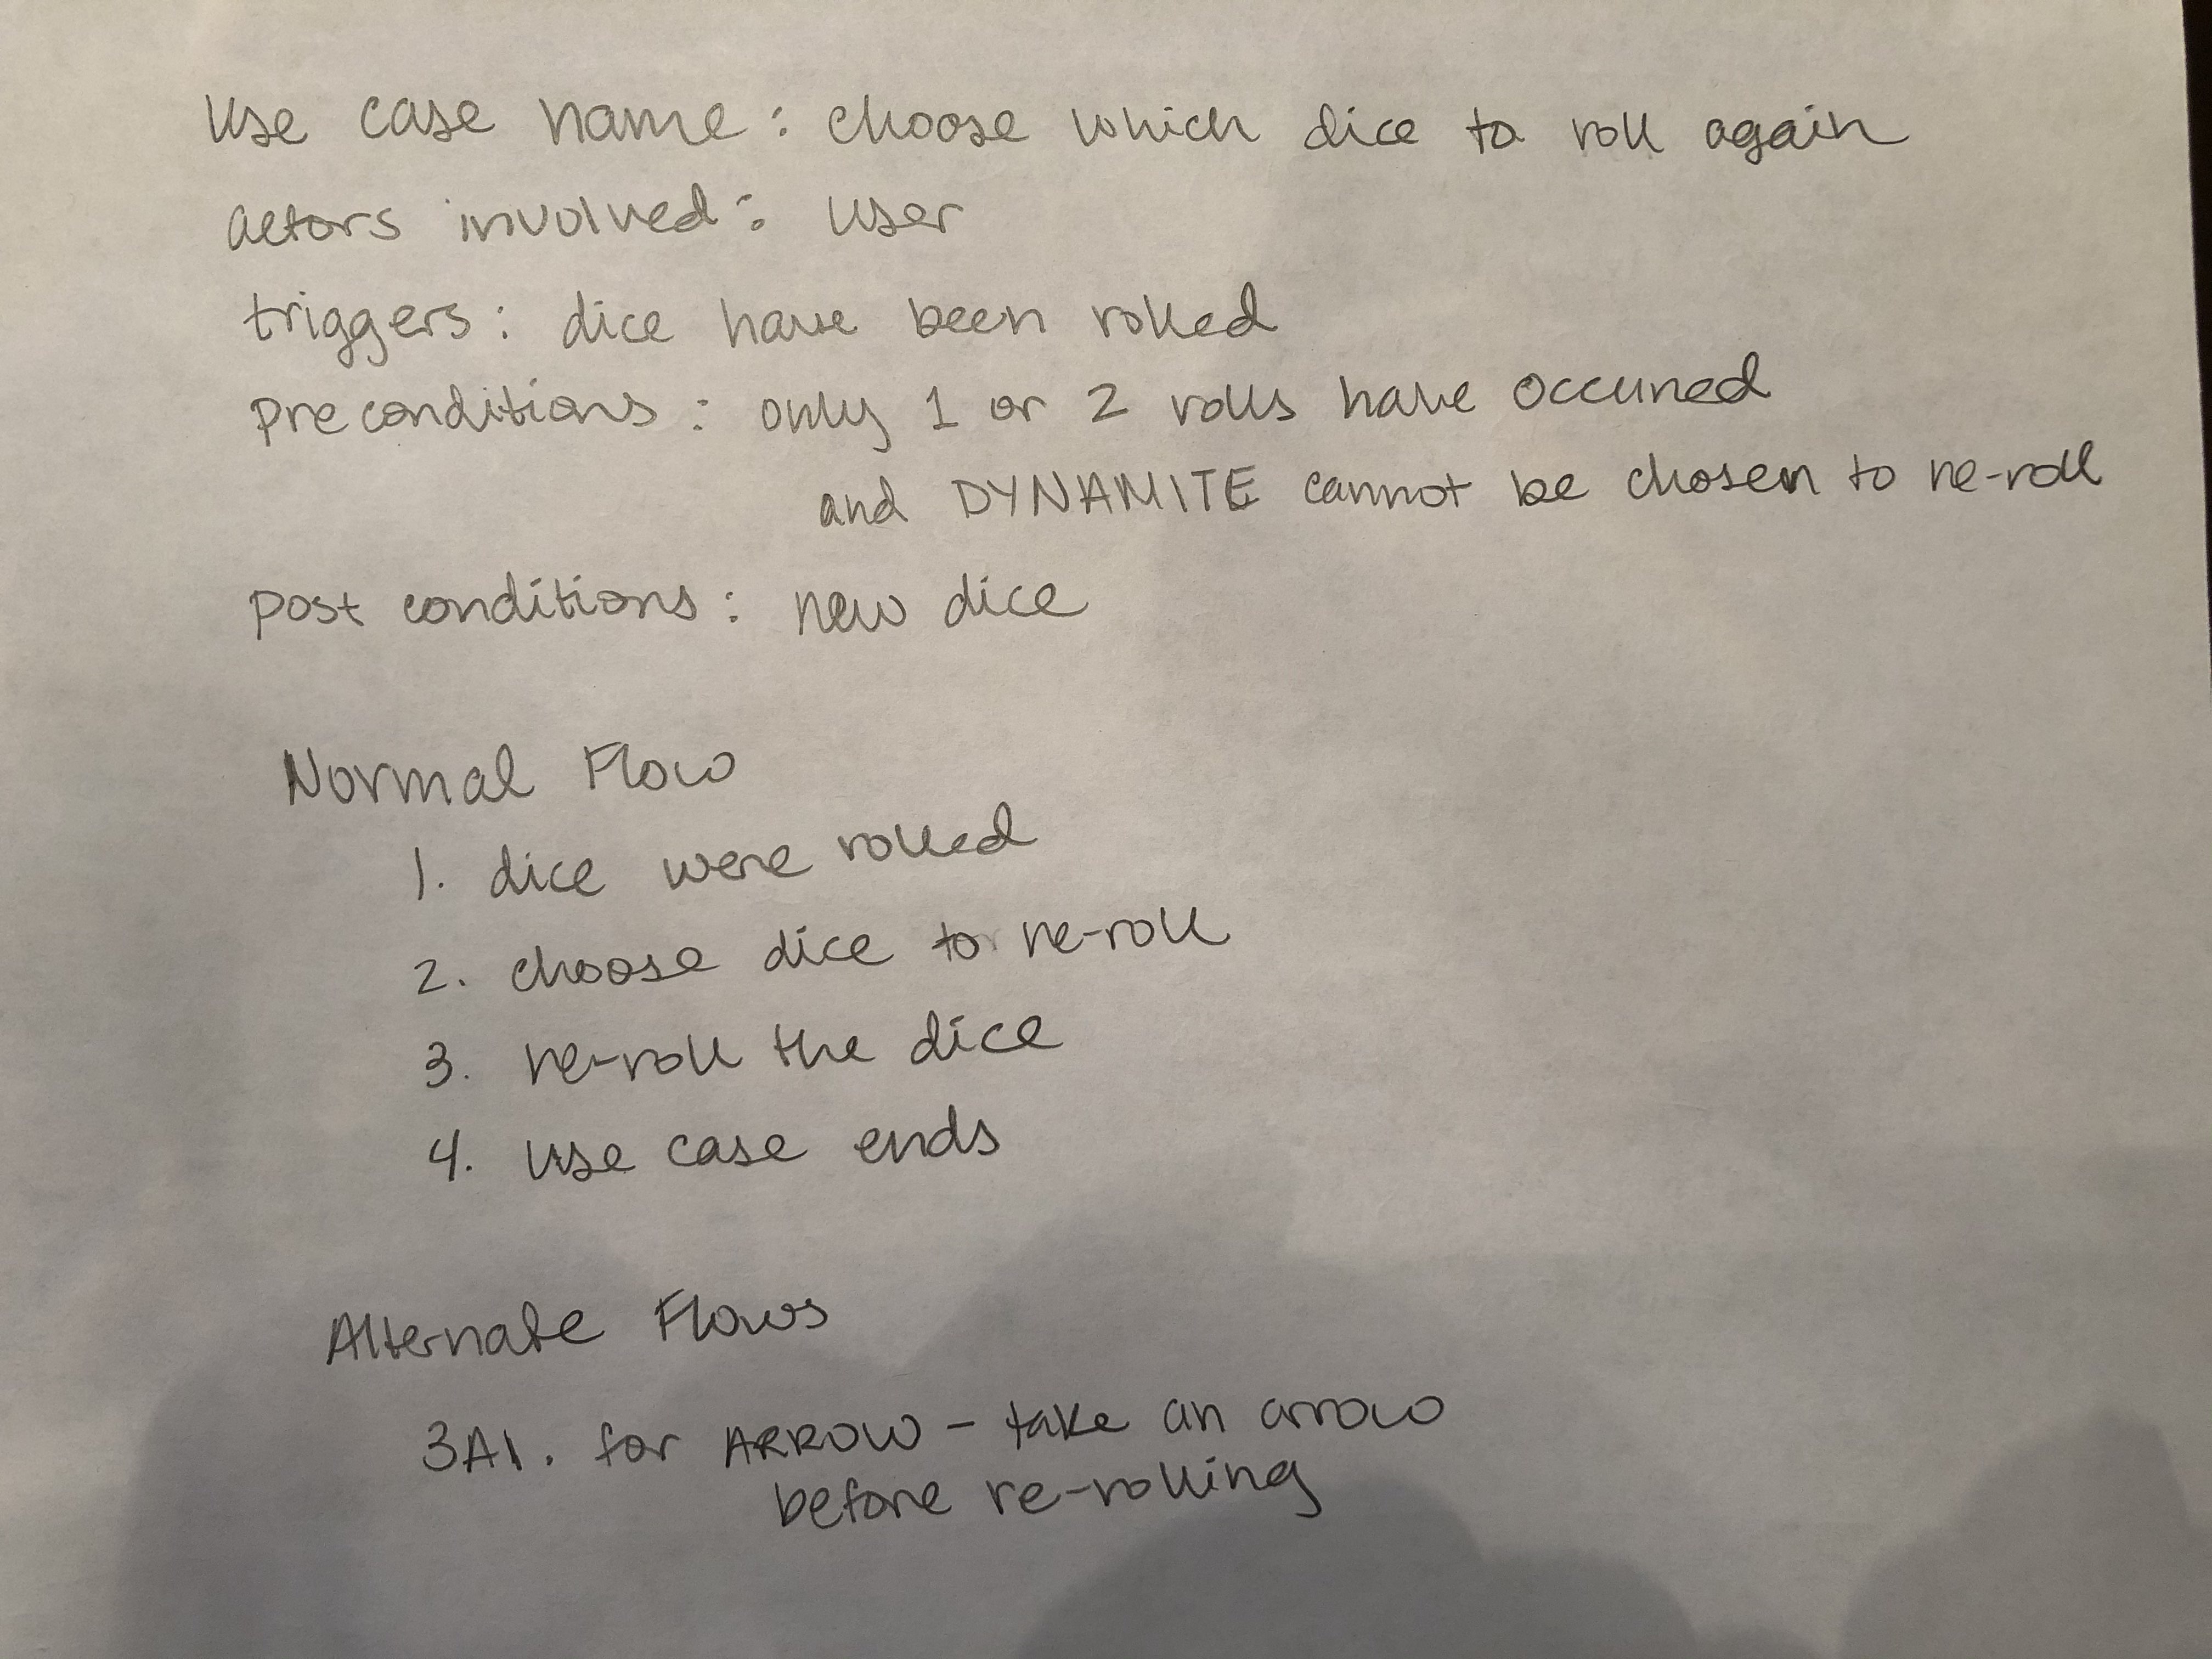 Use case name: choose which dice to roll again
actors involved: user
triggers: dice have been rolled
preconditions: only 1 or 2 rolls have occurred
and DYNAMITE cannot be chosen to re-roll
post conditions: new dice
Normal Flow
1. dice were rolled
2. choose dice to re-roll
3. re-roll the dice
4. use case ends
Alternate Flows
3A1. for ARROW - take an arrow
before re-rolling